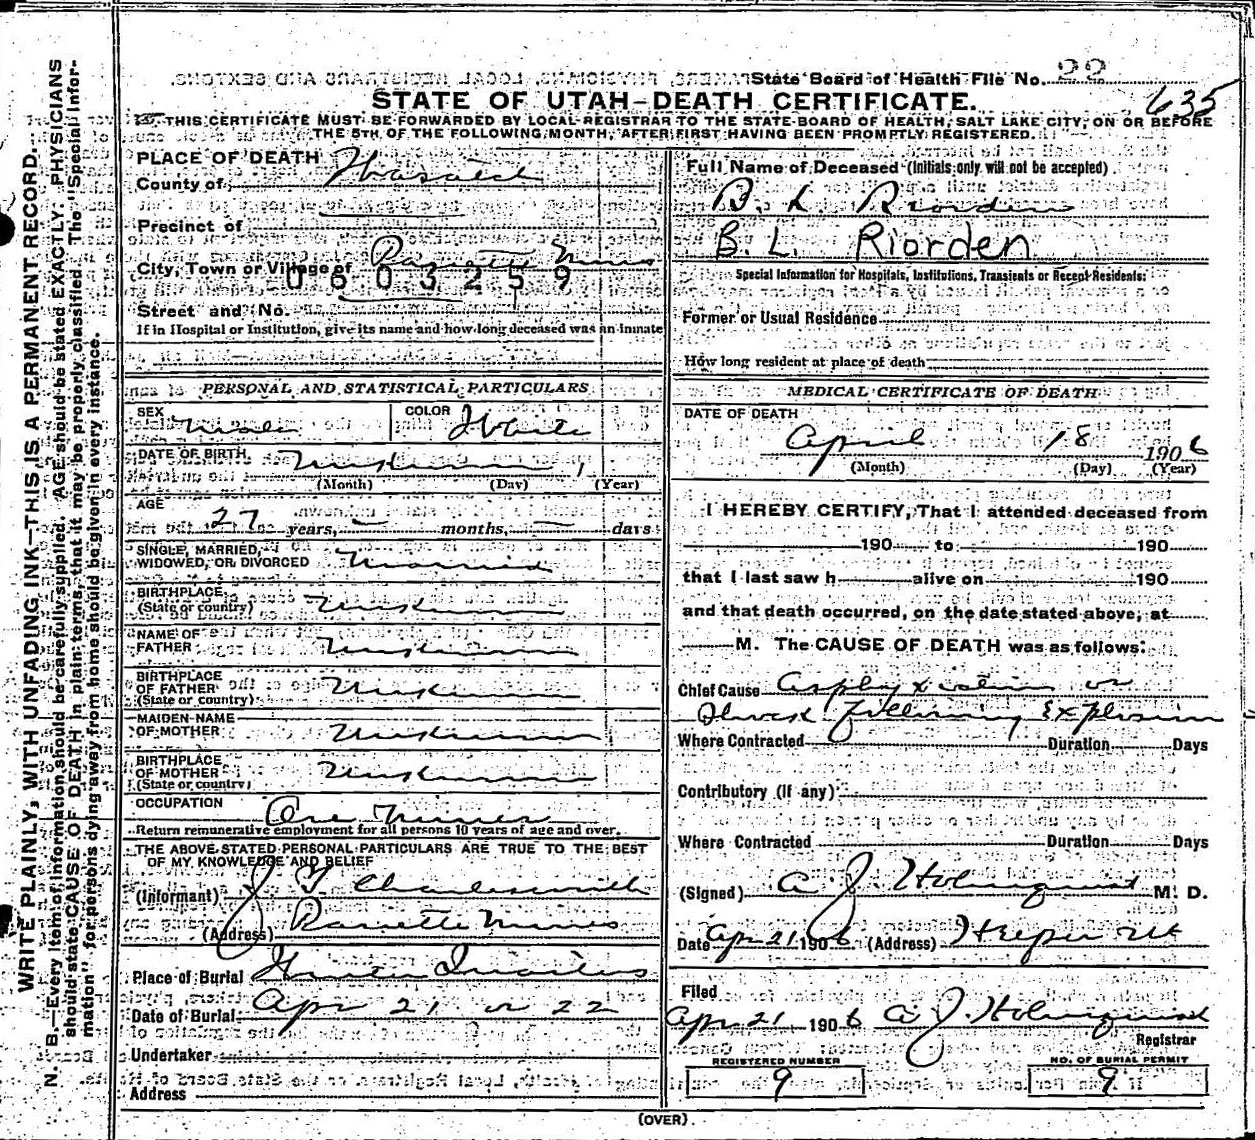 State Board of Health File No. 22
635
STATE OF UTAH—DEATH CERTIFICATE.
THIS CERTIFICATE MUST BE FORWARDED BY LOCAL REGISTRAR TO THE STATE BOARD OF HEALTH, SALT LAKE CITY, ON OR BEFORE
THE 5TH OF THE FOLLOWING MONTH, AFTER FIRST HAVING BEEN PROMPTLY REGISTERED.
WRITE PLAINLY, WITH UNFADING INK—THIS IS A PERMANENT RECORD.
N. B.—Every item of information should be carefully supplied. AGE should be stated EXACTLY. PHYSICIANS
should state CAUSE OF DEATH in plain terms, that it may be properly classified. The "Special Infor-
mation" for persons dying away from home should be given in every instance.
PLACE OF DEATH
County of Wasatch
Precinct of
City, Town or Village of Mines
0603259
Street and No.
If in Hospital or Institution, give its name and how long deceased was an inmate
PERSONAL AND STATISTICAL PARTICULARS
SEX Male COLOR White
DATE OF BIRTH Unknown 1
(Month) (Day) (Year)
AGE
27 years, — months, — days
SINGLE, MARRIED,
WIDOWED, OR DIVORCED Married
BIRTHPLACE
(State or country) Unknown
NAME OF
FATHER Unknown
BIRTHPLACE
OF FATHER Unknown
(State or country)
MAIDEN NAME
OF MOTHER Unknown
BIRTHPLACE
OF MOTHER Unknown
(State or country)
OCCUPATION Ore Miner
Return remunerative employment for all persons 10 years of age and over.
THE ABOVE STATED PERSONAL PARTICULARS ARE TRUE TO THE BEST
OF MY KNOWLEDGE AND BELIEF
(Informant) J. T. Charlesworth
(Address) Mines
Place of Burial
Date of Burial Apr 21 or 22
Undertaker
Address
Full Name of Deceased (Initials only will not be accepted)
B. L. Riorden
B. L. Riorden
Special Information for Hospitals, Institutions, Transients or Recent Residents:
Former or Usual Residence
How long resident at place of death
MEDICAL CERTIFICATE OF DEATH
DATE OF DEATH
April 18 1906
(Month) (Day) (Year)
I HEREBY CERTIFY, That I attended deceased from
190 to 190
that I last saw h alive on 190
and that death occurred, on the date stated above, at
M. The CAUSE OF DEATH was as follows:
Chief Cause Asphyxiation or
Shock following Explosion
Where Contracted Duration Days
Contributory (if any)
Where Contracted Duration Days
(Signed) A. J. Holmquist M. D.
Date Apr 21 1906 (Address) Helper Ut
Filed
Apr 21 1906 A. J. Holmquist
Registrar
REGISTERED NUMBER
9
NO. OF BURIAL PERMIT
9
(OVER)